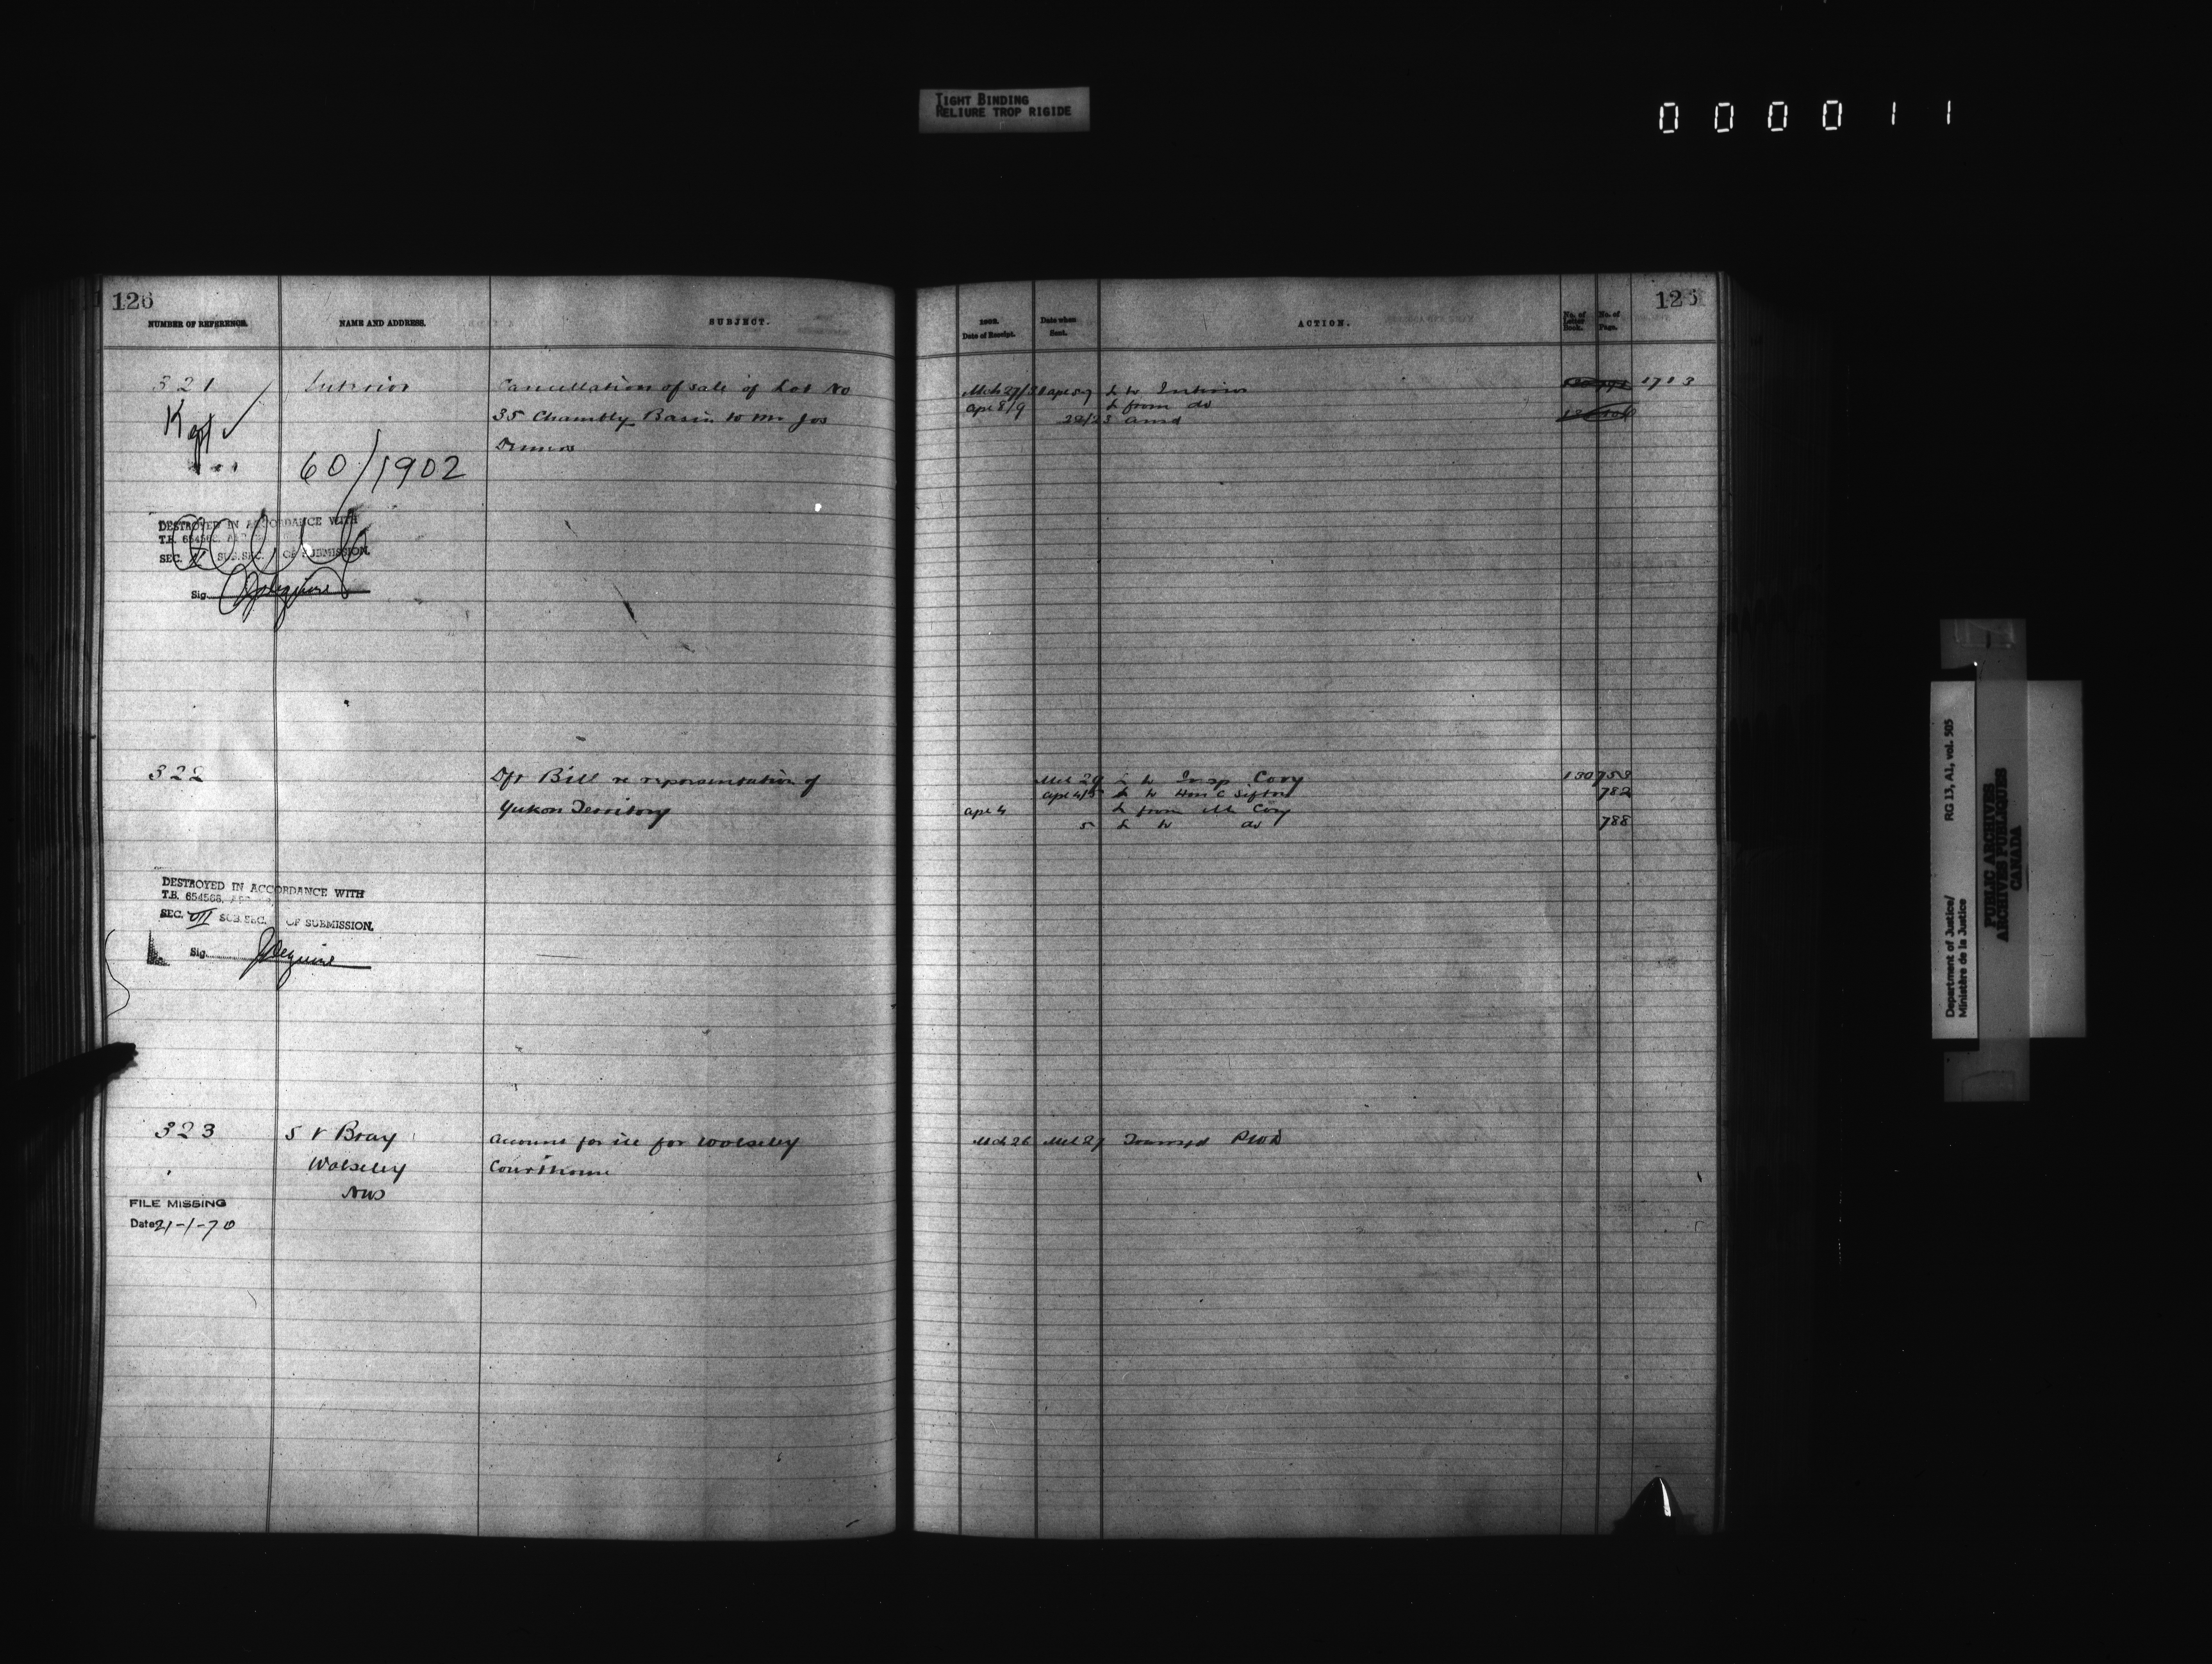 TIGHT BINDING
RELIURE TROP RIGIDE
000011
126
NUMBER OF REFERENCE.
NAME AND ADDRESS.
SUBJECT.
321 / Interior Cancellation of sale of Lot No
35 Chambly Basin to Mr Jos
Kept ✓
60/1902
DESTROYED IN ACCORDANCE WITH
T.B. 654566,
SEC. SUB.SEC. OF SUBMISSION.
Sig.
322 Dft Bill re representation of
Yukon Territory
DESTROYED IN ACCORDANCE WITH
T.B. 654566,
SEC. VII SUB.SEC. OF SUBMISSION.
Sig.
323 S V Bray Account for ice for Wolseley
Wolseley Courthouse
FILE MISSING
Date 21-1-70
126
1902.
Date of Receipt.
Date when
Sent.
ACTION.
No. of
Letter
Book.
No. of
Page.
L to Interior 1713
Apl 8/9 L from do
Mch 29 L to Insp Cory 130 758
Apl 4/5 L to Hon C Sifton 782
Apl 4 L from Mr Cory
5 L to do 788
Mch 26 Mch 27 PWD
Department of Justice/
Ministère de la Justice
RG 13, A1, vol. 505
PUBLIC ARCHIVES
ARCHIVES PUBLIQUES
CANADA